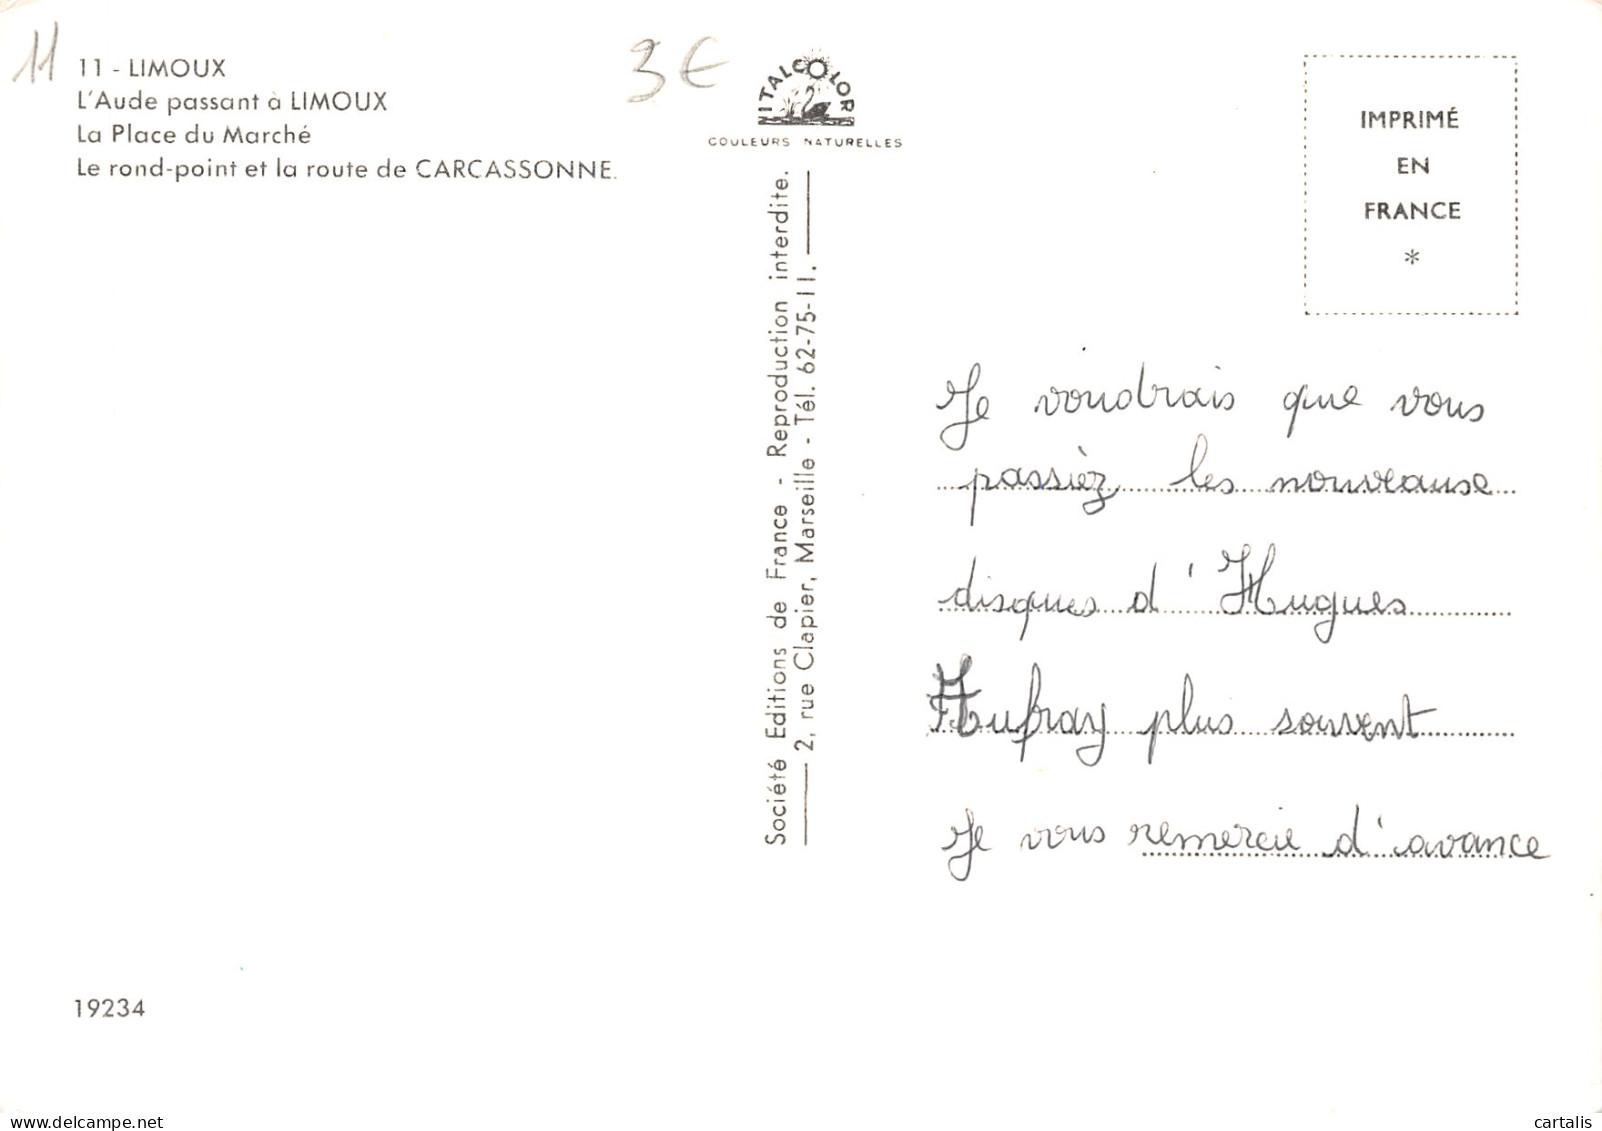 11
11 - LIMOUX
L'Aude passant à LIMOUX
La Place du Marché
Le rond-point et la route de CARCASSONNE.
3€
VITALCOLOR
COULEURS NATURELLES
Société Editions de France - Reproduction interdite.
2, rue Clapier, Marseille - Tél. 62-75-11.
IMPRIMÉ
EN
FRANCE
*
Je voudrais que vous
passièz les nouveause
disques d'Hugues
Aufray plus souvent
Je vous remercie d'avance
19234
delcampe.net
cartalis